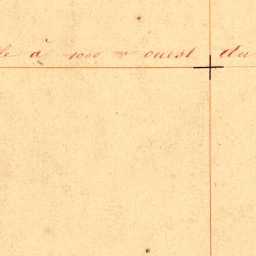 à 1000 m ouest du